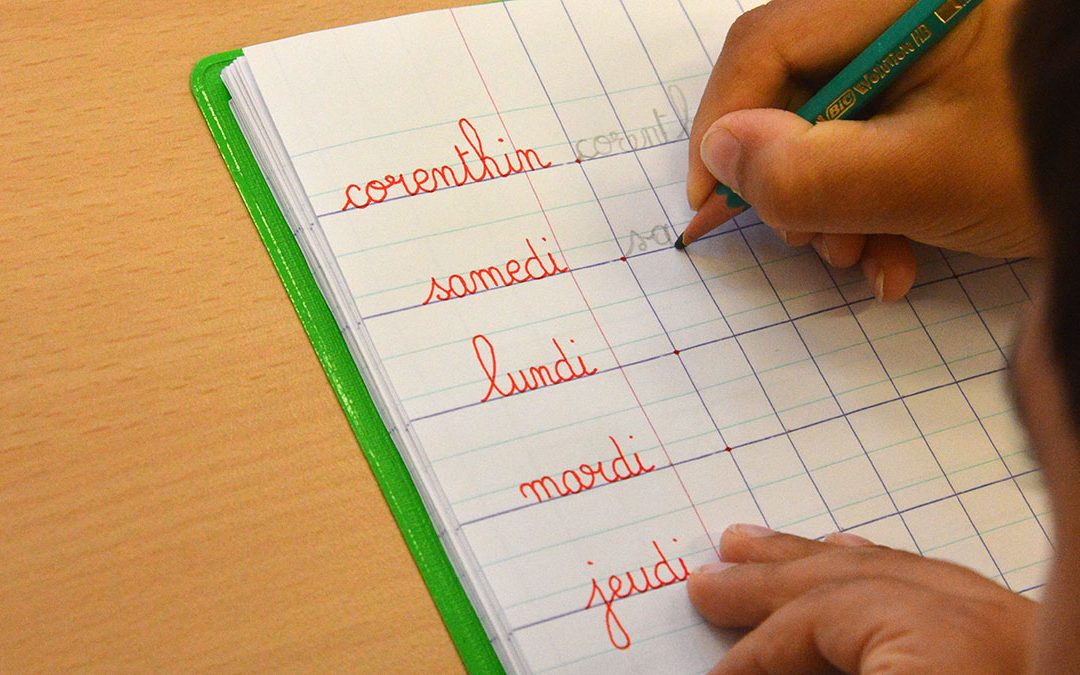 corenthin
samedi sa
lundi
mardi
jeudi
BIC evolution HB